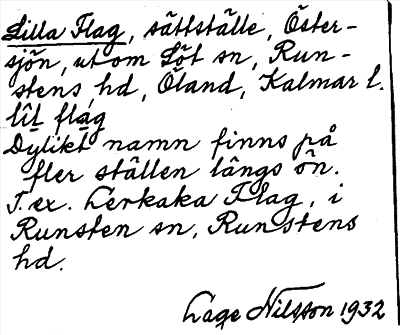 Lilla Flag, sättställe, Öster-
sjön, utom Löt sn, Run-
stens hd, Öland, Kalmar l.
lit flag
Dylikt namn finns på
fler ställen längs ön.
T. ex. Lerkaka Flag, i
Runsten sn, Runstens
hd.
Lage Nilsson 1932